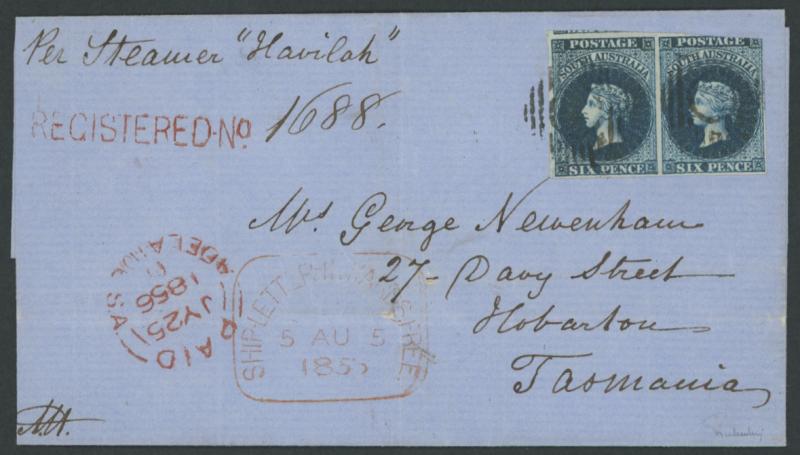 Per Steamer "Havilah"
REGISTERED·No 1688.
POSTAGE
SOUTH AUSTRALIA
SIX PENCE
POSTAGE
SOUTH AUSTRALIA
SIX PENCE
Mrs George Newenham
27 - Davy Street
Hobarton
Tasmania
PAID
ADELAIDE S.A
JY 25
1856
SHIP LETTER INWARDS FREE
5 AU 5
185